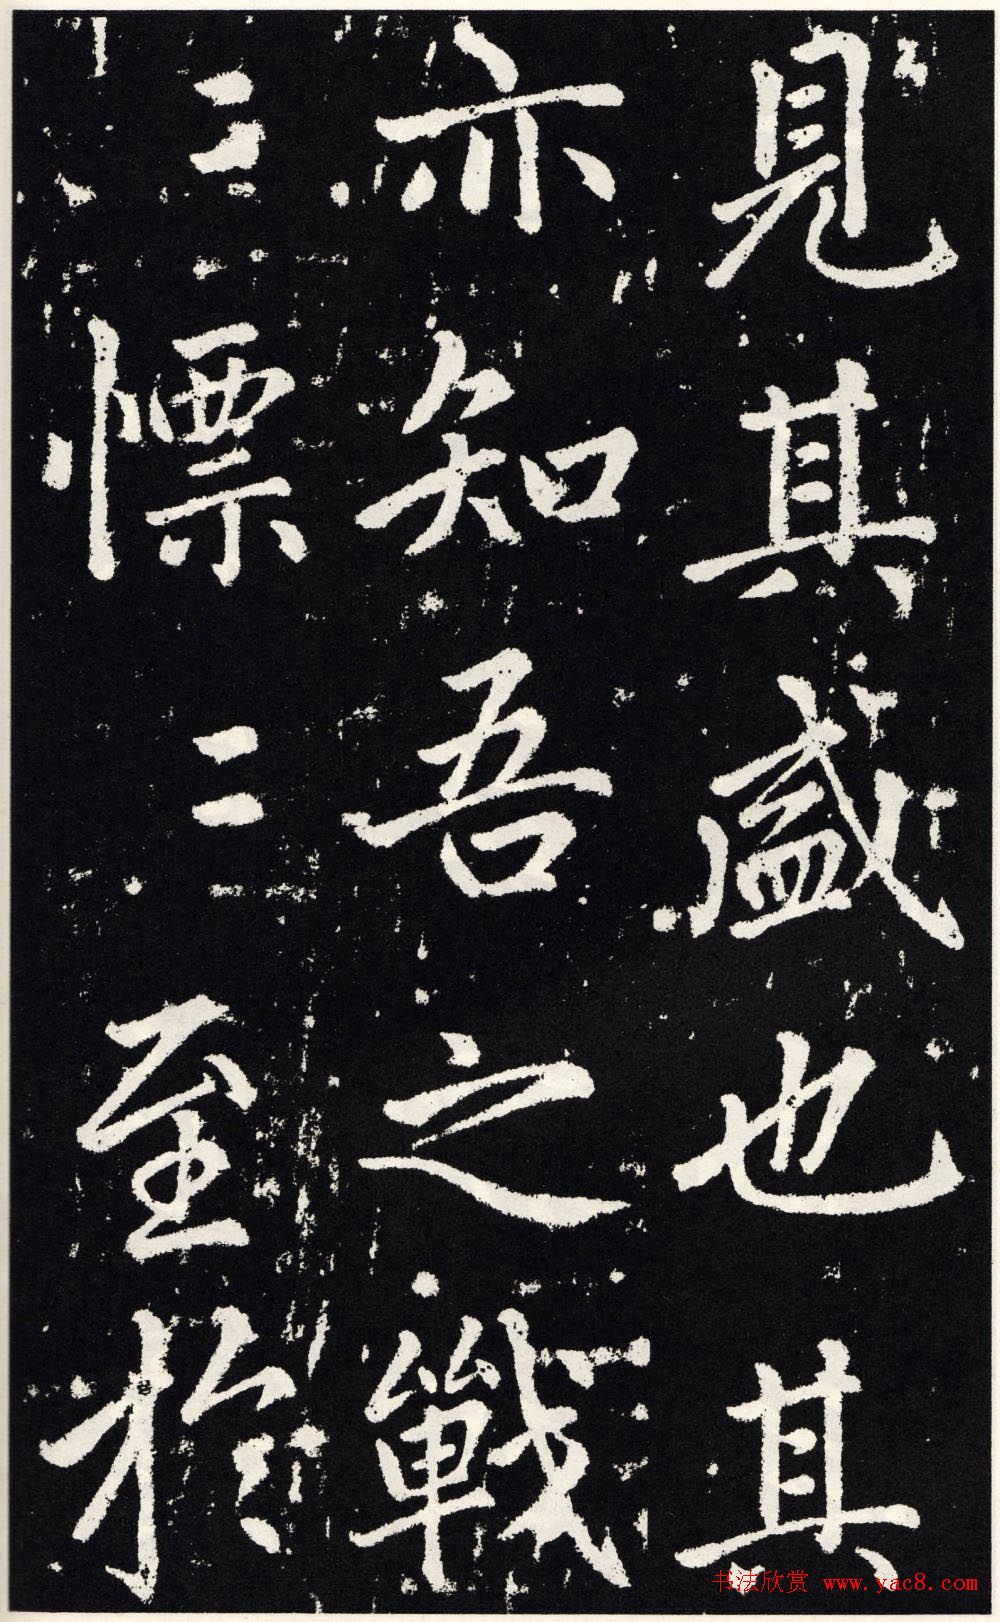 見其盛也其
亦知吾之戰
〻慓〻至於
书法欣赏 www.yac8.com